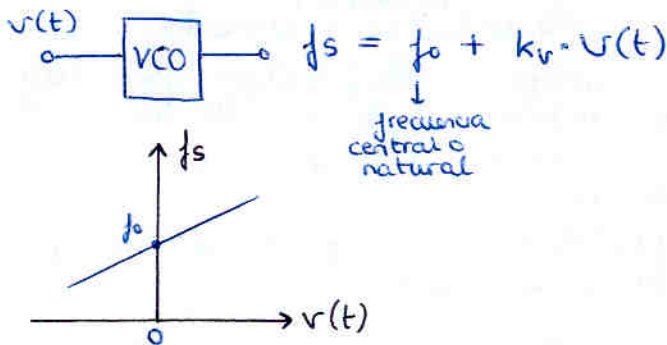 v(t)
VCO
fs = fo + kv · v(t)
frecuencia
central o
natural
fs
fo
v(t)
0